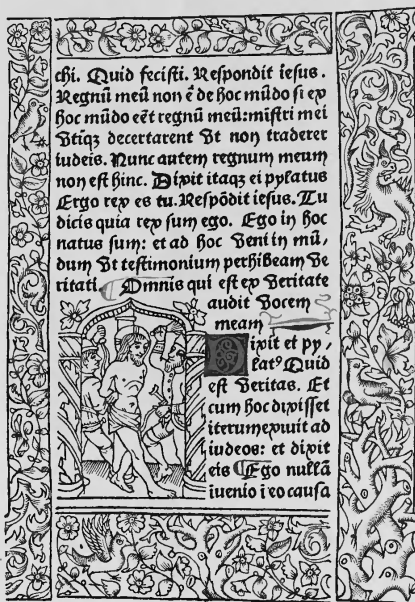 chi. Quid fecisti. Respondit iesus.
Regnū meū non ē de hoc mūdo si ex
hoc mūdo eēt regnū meū: mīstri mei
vtiqꝫ decertarent vt non traderer
iudeis. Nunc autem regnum meum
non est hinc. Dixit itaqꝫ ei pylatus
Ergo rex es tu. Respōdit iesus. Tu
dicis quia rex sum ego. Ego in hoc
natus sum: et ad hoc veni in mū,
dum vt testimonium perhibeam ve
ritati. Omnis qui est ex veritate
audit vocem
meam
Dixit et py,
latꝰ Quid
est veritas. Et
cum hoc dixisset
iterum exiuit ad
iudeos: et dixit
eis Ego nullā
iuenio i eo causa